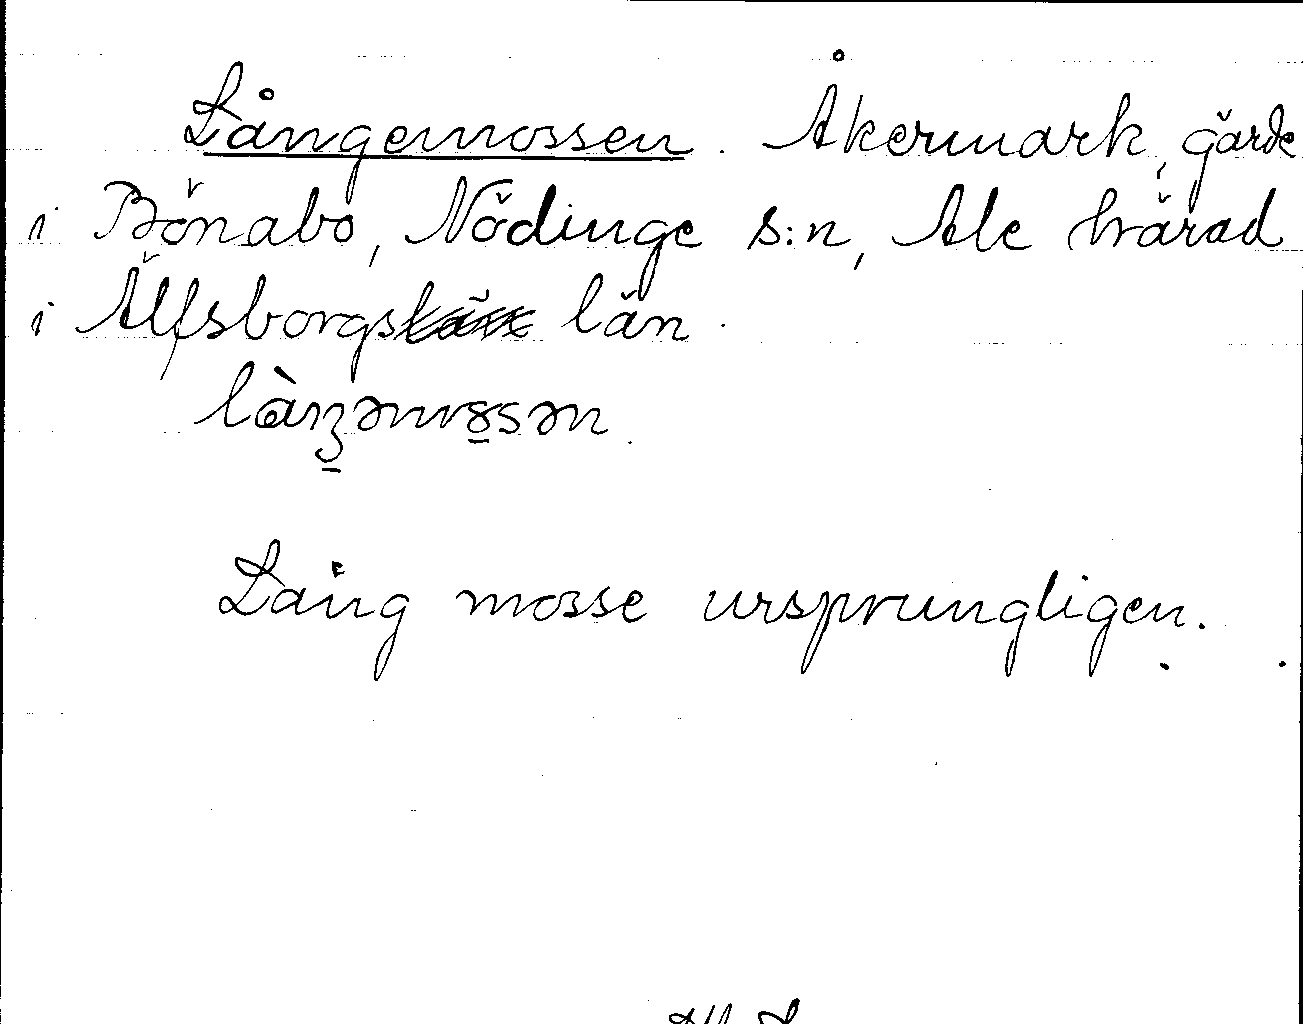 Långemossen. Åkermark, gärde
i Bönabo, Nödinge s:n, Ale härad
i Älfsborgs län.
Lång mosse ursprungligen.